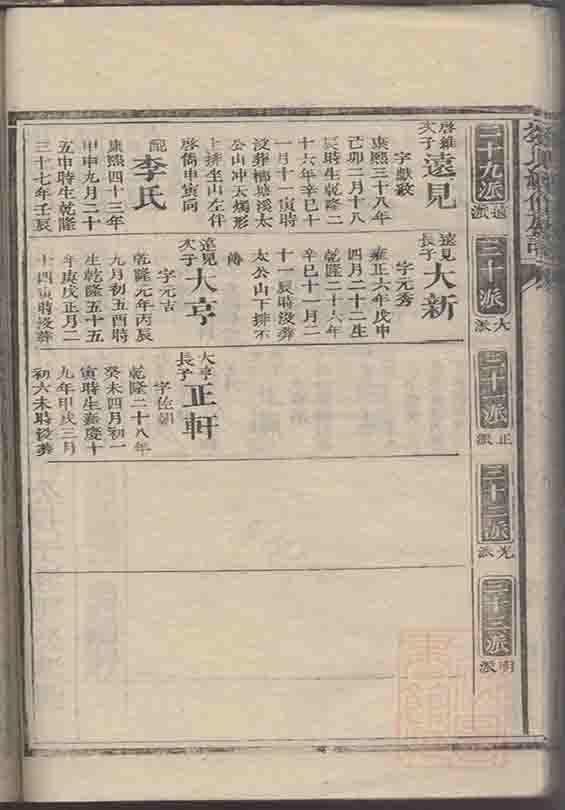 二十九派
遠派
啓維次子 遠見
字獻政
康熙三十八年
己卯二月十八
辰時生乾隆二
十六年辛巳十
一月十一寅時
没葬楠塘溪太
公山冲天燭形
上排坐山左伴
啓僑申寅向
配李氏
康熙四十三年
甲申九月二十
五申時生乾隆
三十七年壬辰
三十派
大派
遠見長子 大新
字元秀
雍正六年戊申
四月二十二生
乾隆二十六年
辛巳十一月二
十一辰時没葬
太公山下排不
傳
遠見次子 大亨
字元吉
乾隆元年丙辰
九月初五酉時
生乾隆五十五
年庚戌正月二
十四寅時没葬
三十一派
正派
大亨長子 正軒
字佐朝
乾隆二十八年
癸未四月初一
寅時生嘉慶十
九年甲戌三月
初六未時没葬
三十二派
光派
三十三派
明派